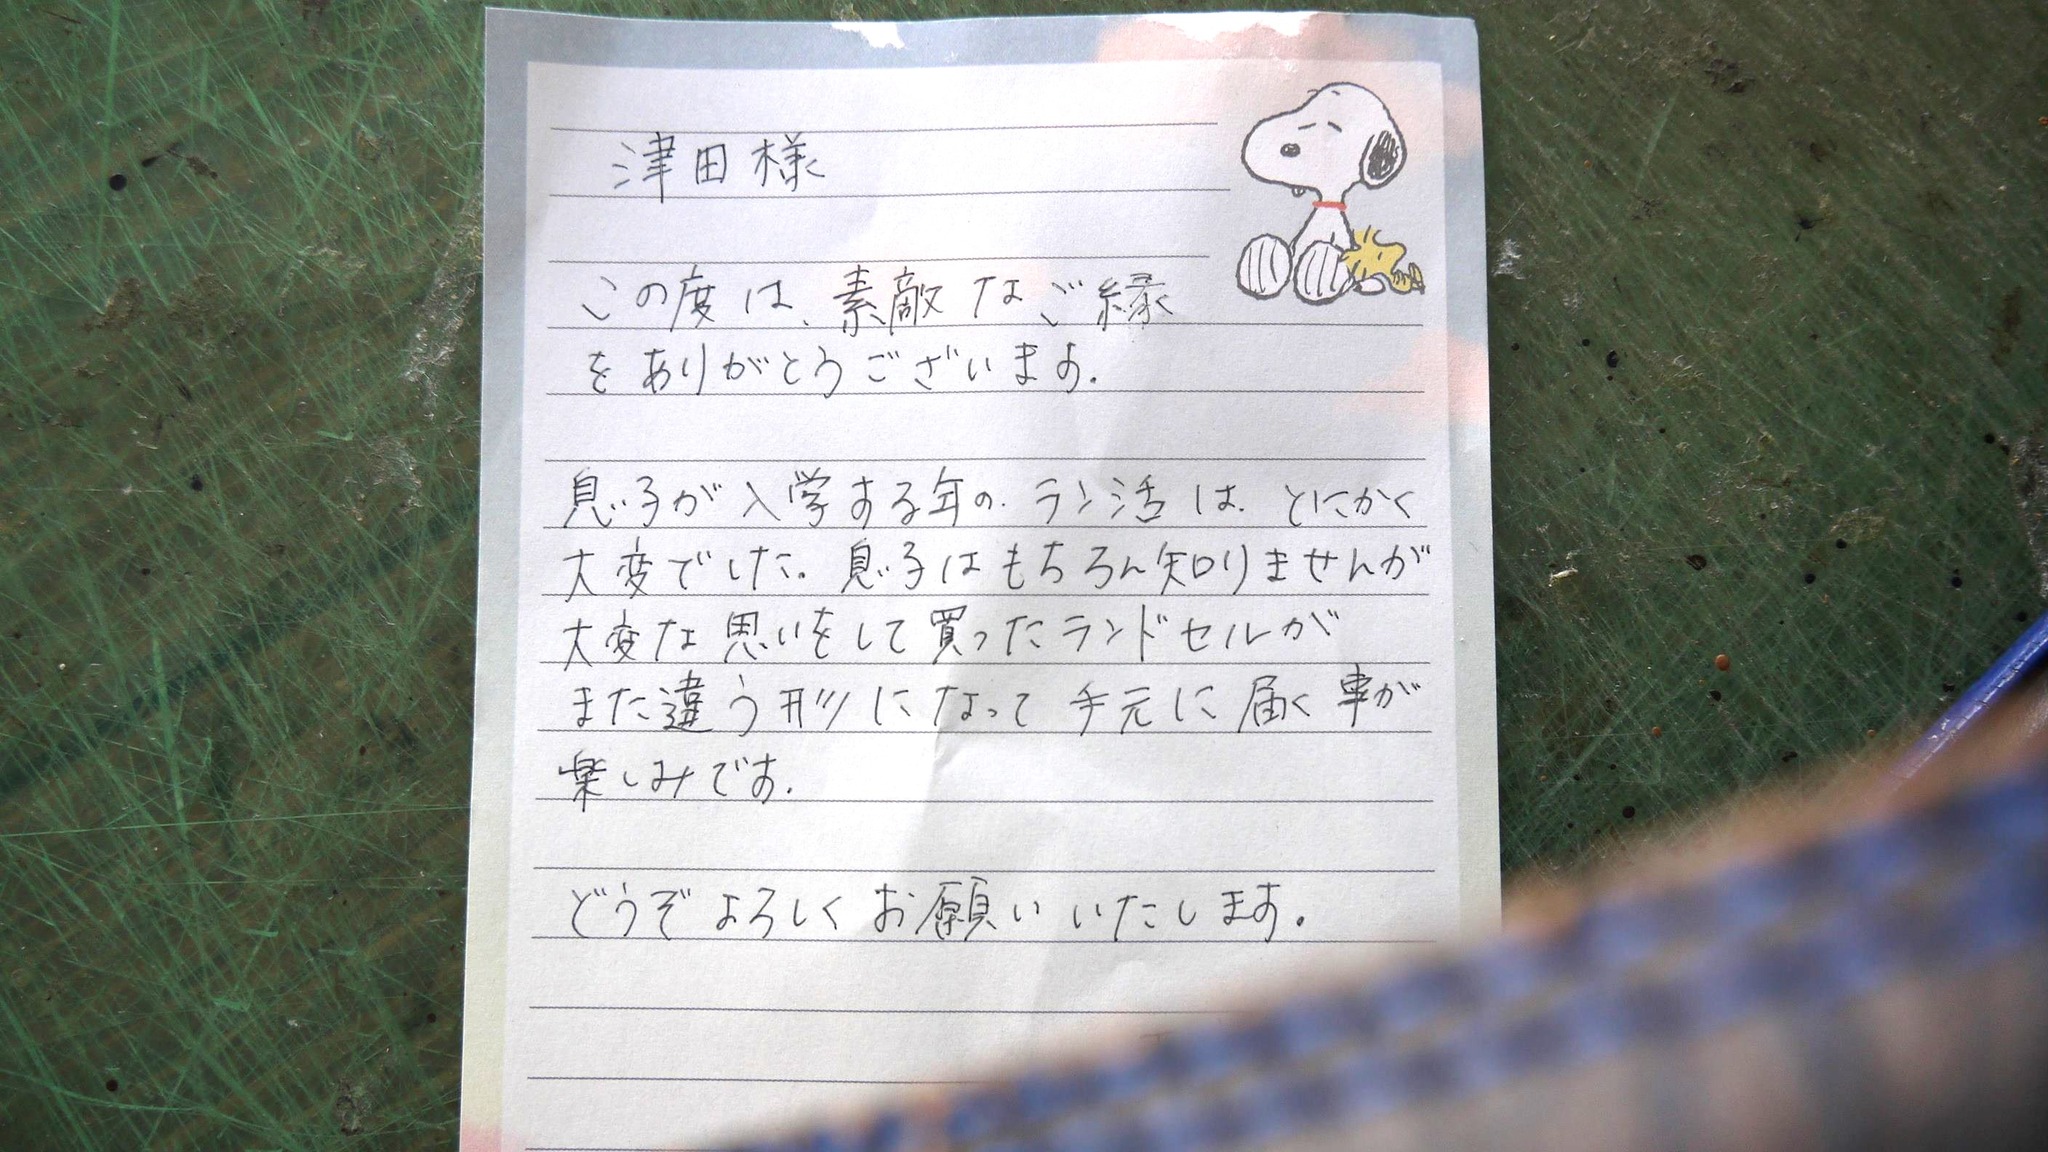 津田様
この度は、素敵なご縁
をありがとうございます。
息子が入学する年の、ラン活は、とにかく
大変でした。息子はもちろん知りませんが
大変な思いをして買ったランドセルが
また違う形になって手元に届く事が
楽しみです。
どうぞよろしくお願いいたします。